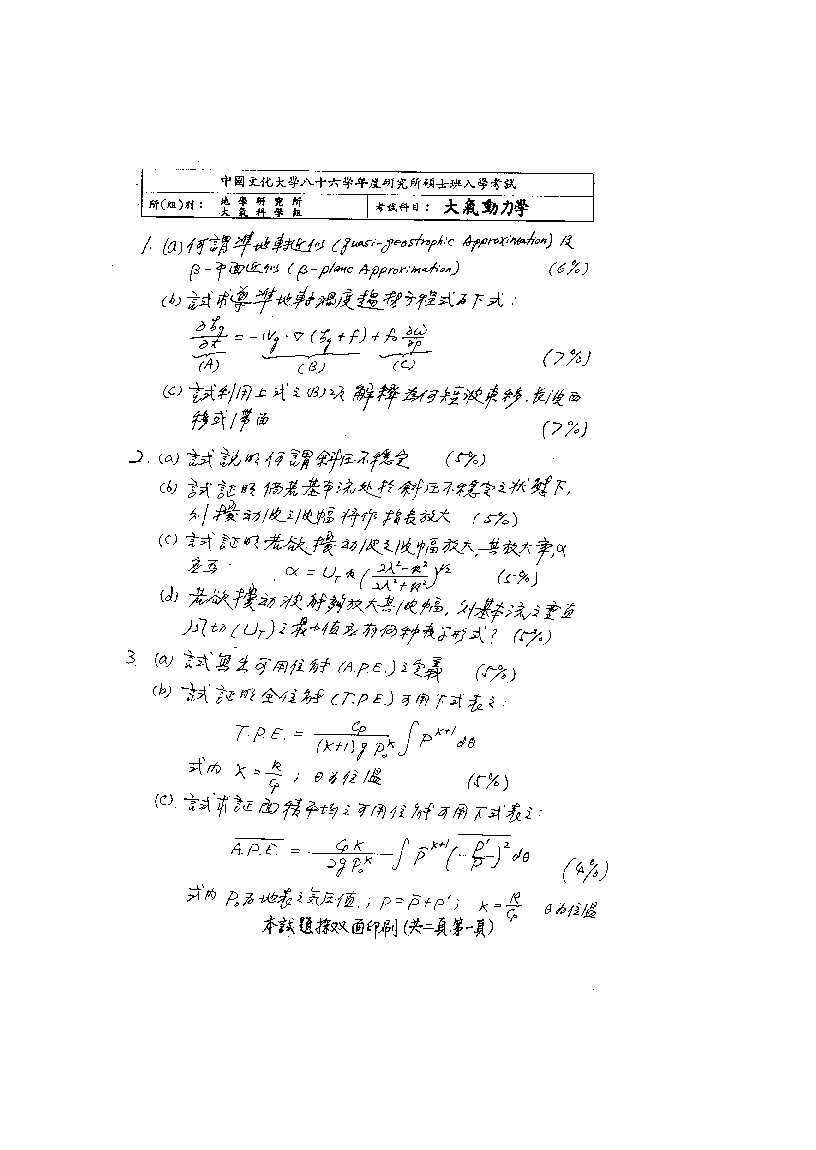 中國文化大學八十六學年度研究所碩士班入學考試
所(組)別: 地學研究所 大氣科學組 考試科目: 大氣動力學
1. (a) 何謂準地轉近似 (quasi-geostrophic Approximation) 及
β-平面近似 (β-plane Approximation) (6%)
(b) 試求導準地轉渦度趨勢方程式如下式:
∂ζg/∂t = -Vg·∇(ζg+f) + f₀ ∂ω/∂p
(A) (B) (C) (7%)
(c) 試利用上式之(B)項解釋為何短波東移、長波西
移或滯留 (7%)
2. (a) 試說明何謂斜壓不穩定 (5%)
(b) 試証明倘若基本流處於斜壓不穩定之狀態下,
則擾動波之波幅將作指數放大 (5%)
(c) 試証明若欲擾動波之波幅放大, 其放大率α
應為 α = U_T k ((2λ²-k²)/(2λ²+k²))^{1/2} (5%)
(d) 若欲擾動波能夠放大其波幅, 則基本流之垂直
風切 (U_T) 之最小值應有何種表示形式? (5%)
3. (a) 試寫出可用位能 (A.P.E.) 之定義 (5%)
(b) 試証明全位能 (T.P.E.) 可用下式表之:
T.P.E. = Cp/((K+1) g P₀^K) ∫ P^{K+1} dθ
式內 K = R/Cp ; θ為位溫 (5%)
(c). 試求証面積平均之可用位能可用下式表之:
\overline{A.P.E.} = Cp K/(2g P₀^K) ∫ \bar{P}^{K+1} \overline{(P'/\bar{P})²} dθ (4%)
式內 P₀為地表之氣壓值.; P = \bar{P} + P' ; K = R/Cp θ為位溫
本試題採双面印刷 (共二頁 第一頁)